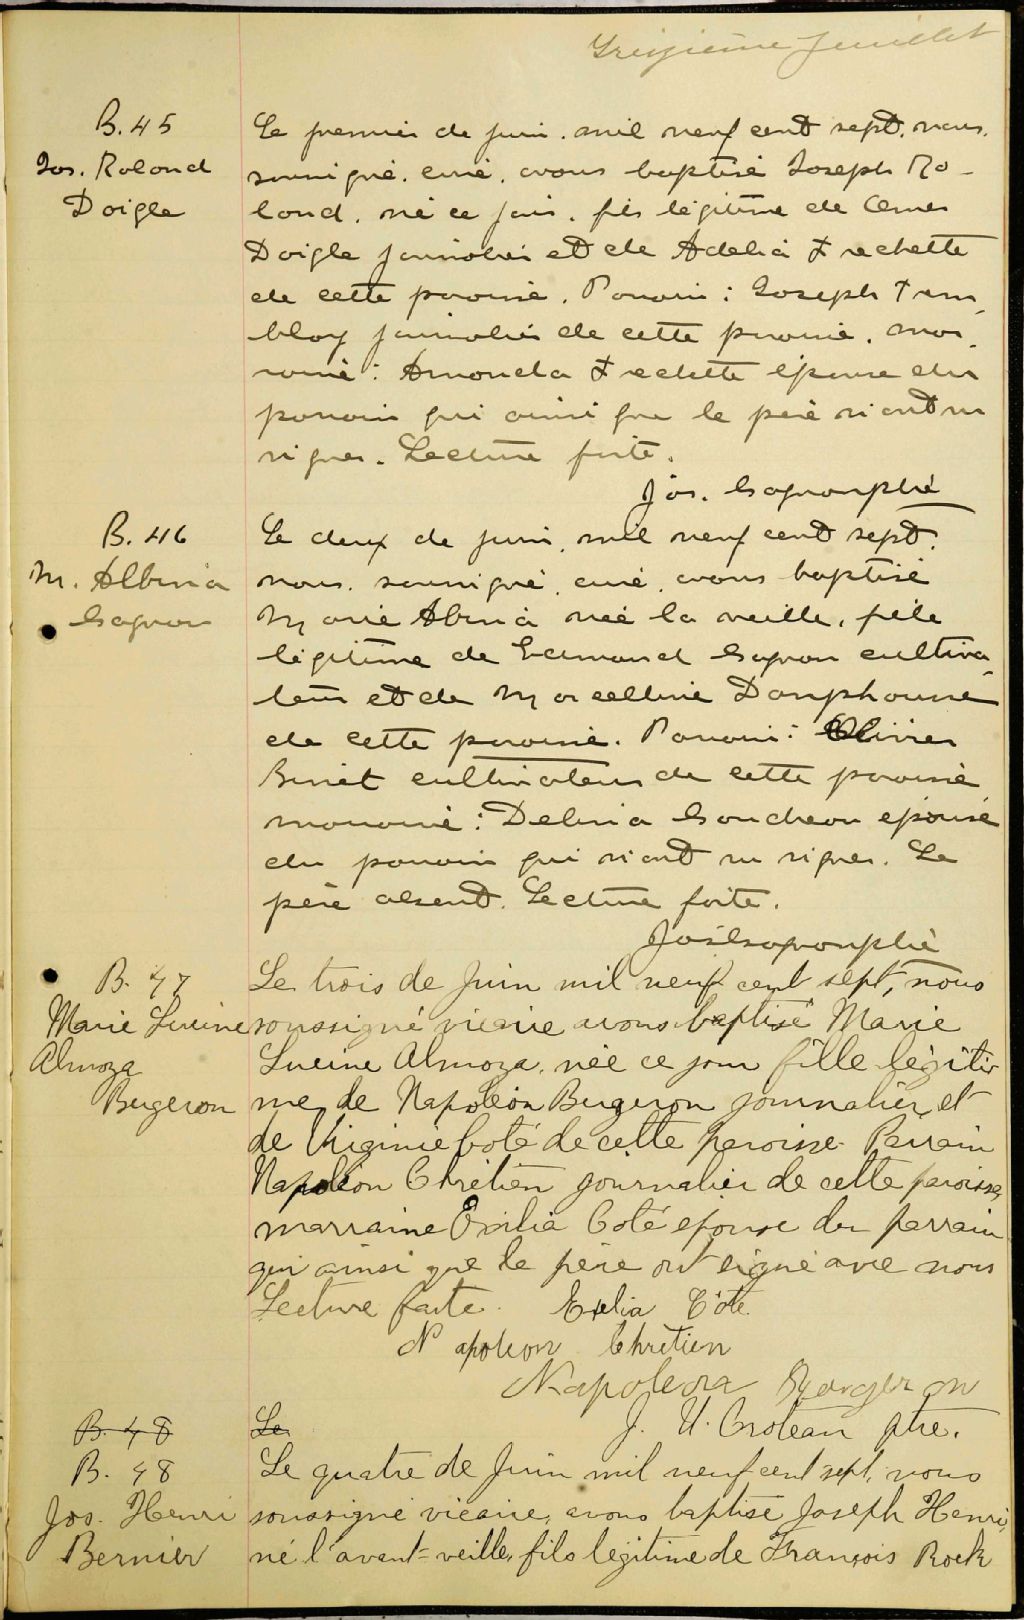 Treizième feuillet
B. 45
Jos. Roland
Daigle
Le premier de juin, mil neuf cent sept, nous,
soussigné, curé, avons baptisé Joseph Ro-
land, né ce jour, fils légitime de Omer
Daigle journalier et de Adelia Frechette
de cette paroisse. Parrain : Joseph Trem-
blay journalier de cette paroisse, mar-
raine : Amanda Frechette épouse du
parrain qui ainsi que le père n'ont su
signer. Lecture faite.
Jos. Gagnon ptre
B. 46
M. Albina
Gagnon
Le deux de juin, mil neuf cent sept,
nous, soussigné, curé, avons baptisé
Marie Albina née la veille, fille
légitime de Edmond Gagnon cultiva-
teur et de Marcelline Dauphounè
de cette paroisse. Parrain : Olivier
Binet cultivateur de cette paroisse
marraine : Delina Gaudreau épouse
du parrain qui n'ont su signer. Le
père absent. Lecture faite.
Jos Gagnon ptre
B. 47
Marie Lucine
Almoza
Bergeron
Le trois de Juin mil neuf cent sept, nous
soussigné vicaire avons baptisé Marie
Lucine Almoza, née ce jour fille légiti-
me, de Napoléon Bergeron journalier, et
de Virginie Coté de cette paroisse. Parrain
Napoléon Chrétien journalier de cette paroisse,
marraine Exilia Coté épouse du parrain
qui ainsi que le père ont signé avec nous
Lecture faite. Exelia Côte
Napoleon Chretien
Napoleon Bergeron
J. U. Croteau ptre.
B. 48
Le
B. 48
Jos. Henri
Bernier
Le quatre de Juin mil neuf cent sept, nous
soussigné vicaire, avons baptisé Joseph Henri,
né l'avant-veille, fils légitime de François Rock